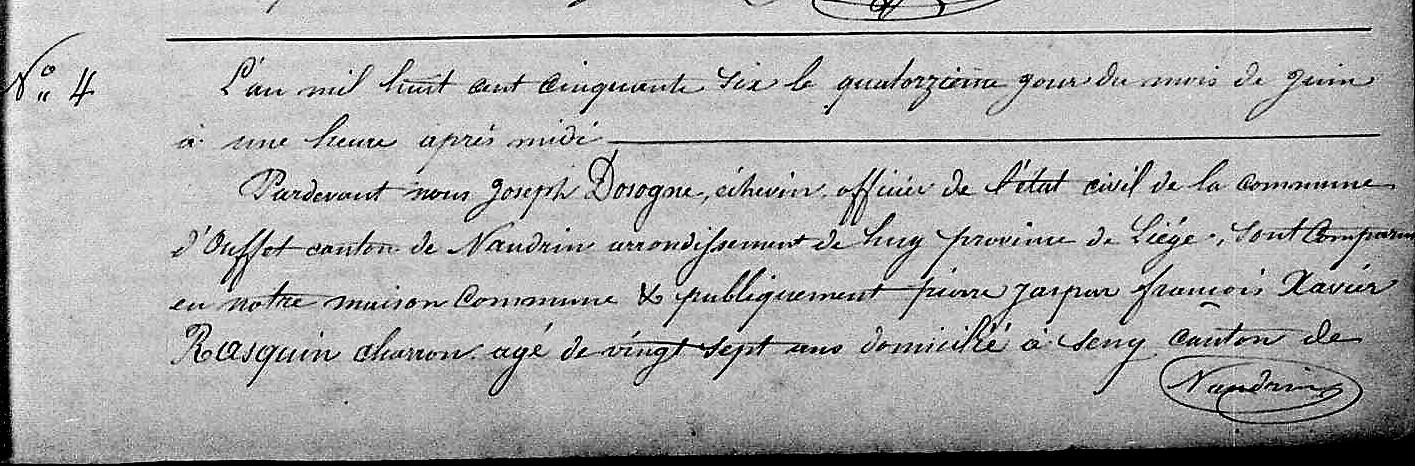 N° 4
L'an mil huit cent cinquante six le quatorzième jour du mois de juin
à une heure après midi
Pardevant nous Joseph Dosogne, échevin, officier de l'état civil de la commune
d'Ouffet canton de Nandrin arrondissement de huy province de Liége, sont comparus
en notre maison commune & publiquement pierre jaspar françois Xavier
Rasquin charron agé de vingt sept ans domicilié à Seny canton de
Nandrin